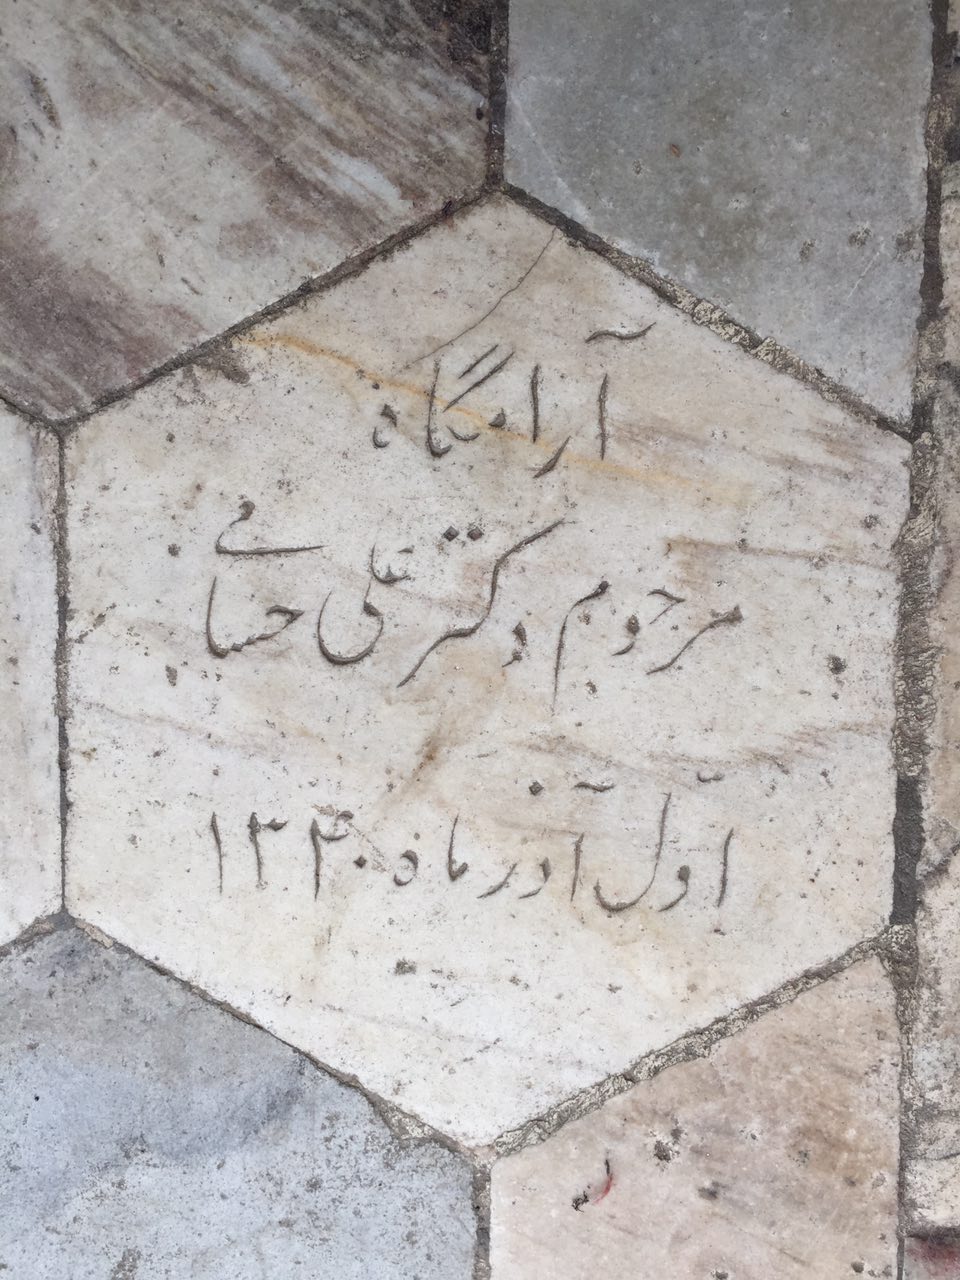 آرامگاه
مرحوم دکتر علی حسابی
اول آذر ماه ۱۳۴۰